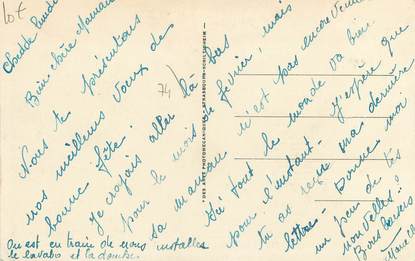 10€
Chedde lundi
Bien chère Maman
Nous te présentons
nos meilleurs vœux de
bonne fête.
Je croyais aller là bas
pour le mois de février, mais
sa maman n'est pas encore venue
Ici tout le monde va bien
pour l'instant. J'espère que
tu as reçue ma dernière
lettre. Donne moi
un peu de tes
nouvelles?
Bons baisers
Marcelle
On est en train de nous installer
le lavabo et la douche.
74
DES ARTS PHOTOMECANIQUES
STRASBOURG-SCHILTIGHEIM